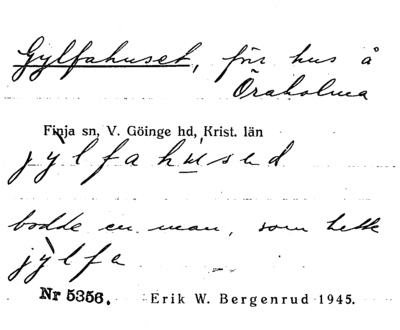 Gylfahuset, förr hus å
Öraholma
Finja sn, V. Göinge hd, Krist. län
jỳlfahu̲send
bodde en man, som hette
jỳlfa
Nr 5356. Erik W. Bergenrud 1945.